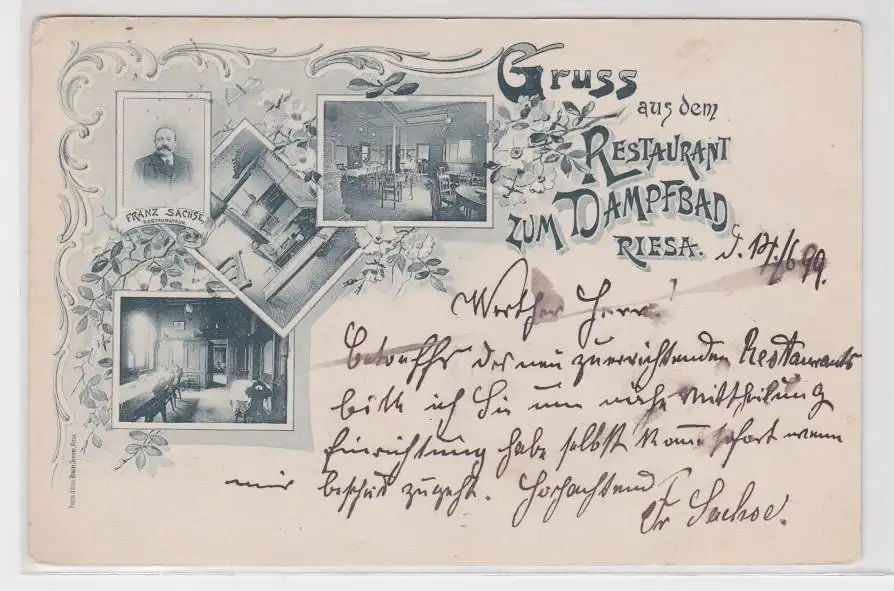 Gruss
aus dem
Restaurant
zum Dampfbad
Riesa.
FRANZ SACHSE,
RESTAURATEUR
d. 14./6 99.
Werther Herr!
Betreffs des neu zu errichtenden Restaurants
bitte ich Sie um nähe Mittheilung
Einrichtung habe selbst kann sofort wenn
mir bescheid zugeht. Hochachtend
Fr Sachse.